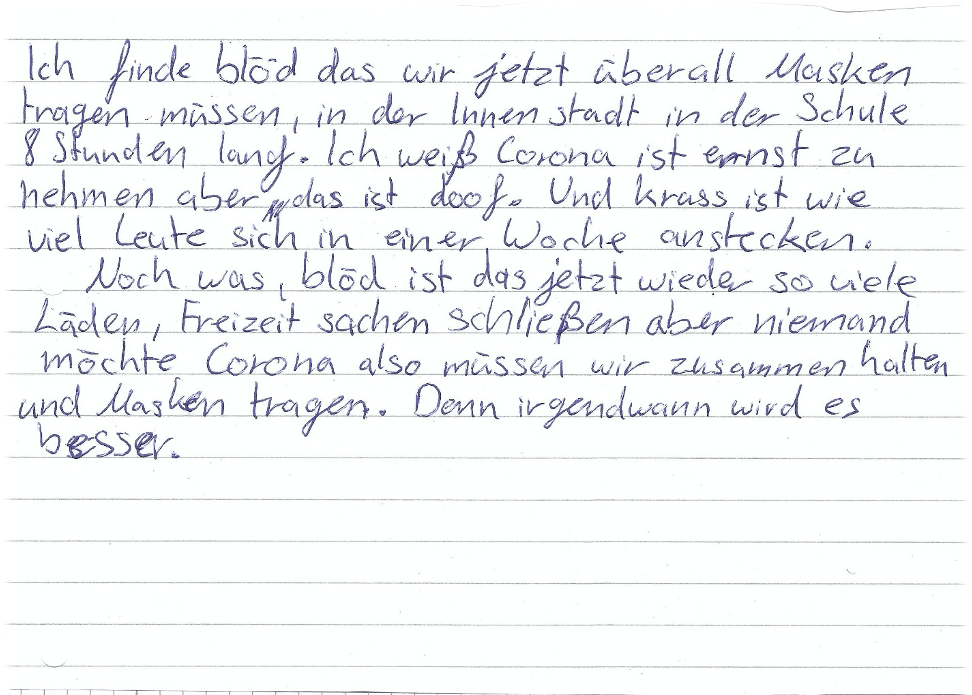 Ich finde blöd das wir jetzt überall Masken
tragen müssen, in der Innenstadt in der Schule
8 Stunden lang. Ich weiß Corona ist ernst zu
nehmen aber das ist doof. Und krass ist wie
viel Leute sich in einer Woche anstecken.
Noch was, blöd ist das jetzt wieder so viele
Läden, Freizeit sachen schließen aber niemand
möchte Corona also müssen wir zusammen halten
und Masken tragen. Denn irgendwann wird es
besser.